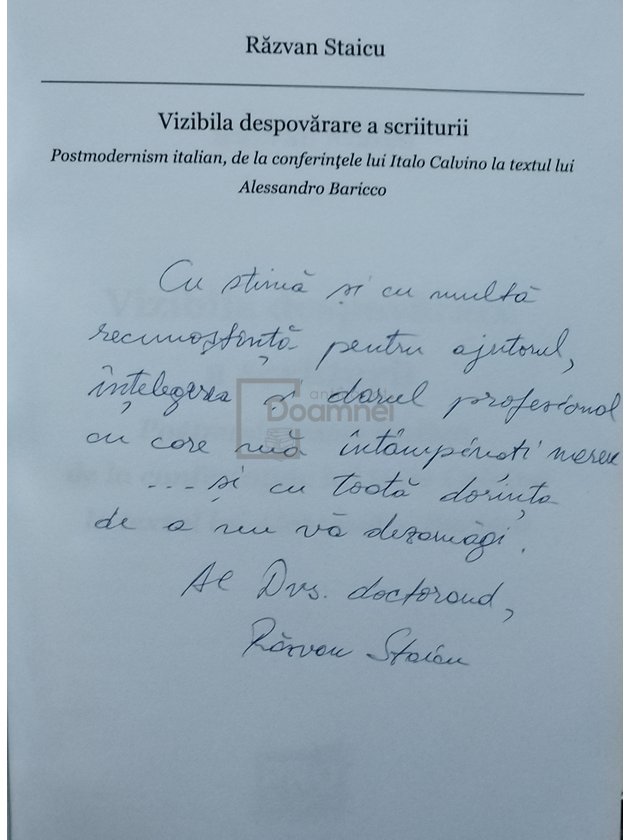 Răzvan Staicu
Vizibila despovărare a scriiturii
Postmodernism italian, de la conferințele lui Italo Calvino la textul lui
Alessandro Baricco
Cu stimă și cu multă
recunoștință pentru ajutorul,
înțelegerea și darul profesional
cu care mă întâmpinați mereu
... și cu toată dorința
de a nu vă dezamăgi.
Al Dvs. doctorand,
Răzvan Staicu
Doamnei